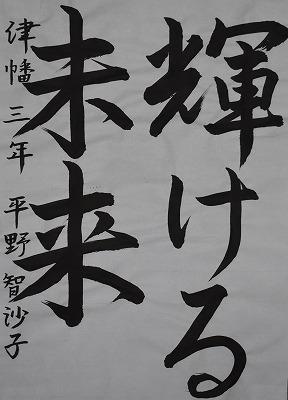 輝ける
未来
津幡 三年 平野智沙子